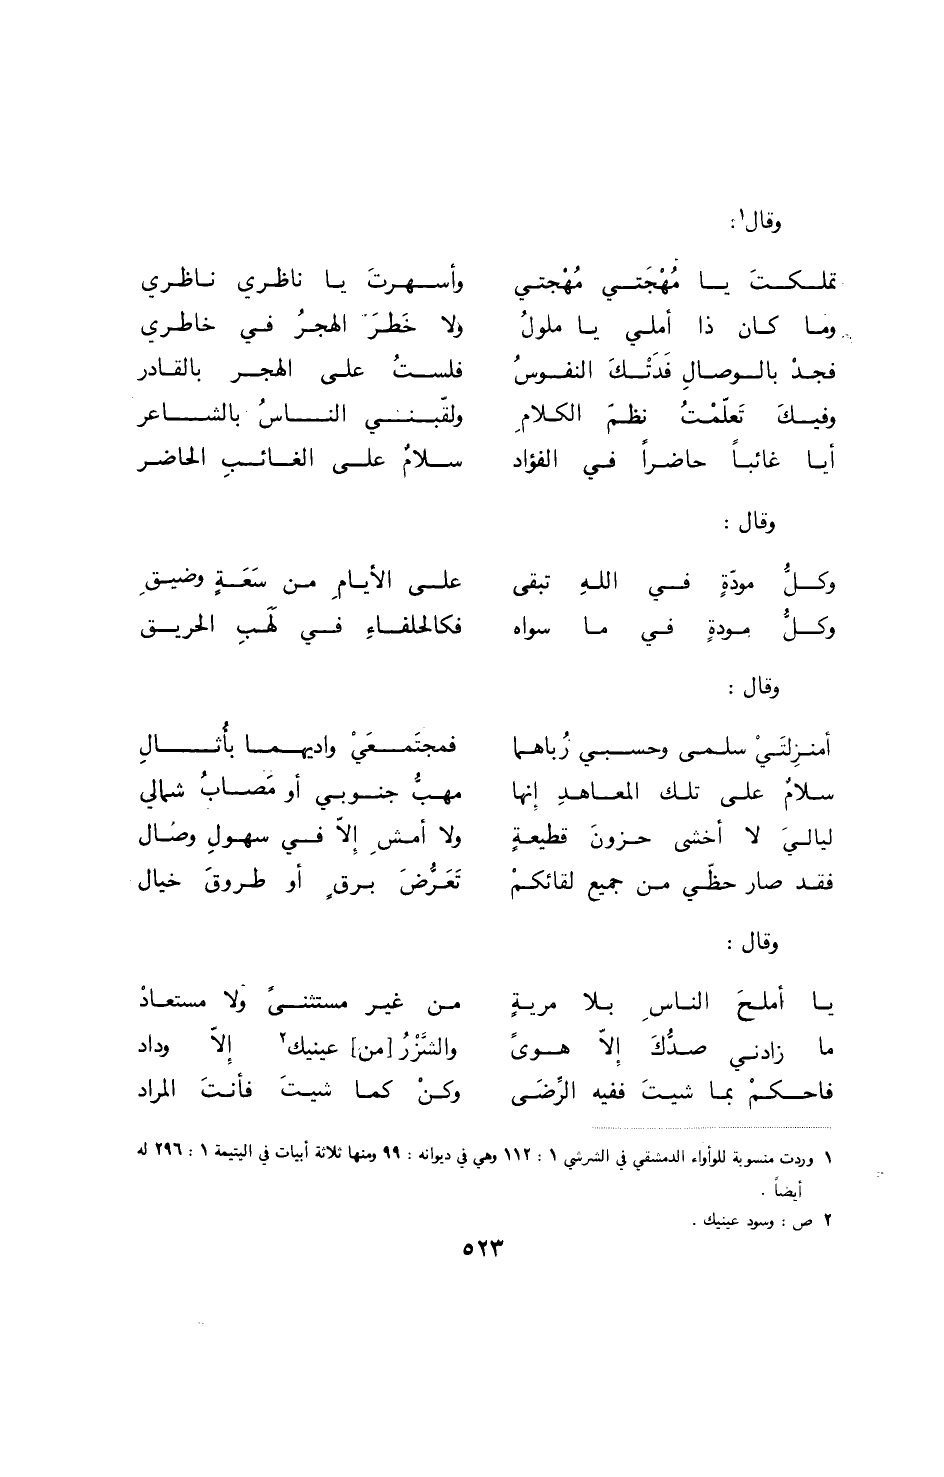 وقال١:
تملكتَ يا مُهْجَتي مُهْجتي وأسهرتَ يا ناظري ناظري
وما كان ذا أملي يا ملولُ ولا خَطَرَ الهجرُ في خاطري
فجدْ بالوصالِ فَدَتْكَ النفوسُ فلستُ على الهجرِ بالقادرِ
وفيكَ تَعلّمْتُ نظمَ الكلامِ ولقّبني الناسُ بالشاعرِ
أيا غائباً حاضراً في الفؤاد سلامٌ على الغائبِ الحاضرِ
وقال :
وكلُّ مودّةٍ في اللهِ تبقى على الأيامِ من سَعَةٍ وضيقِ
وكلُّ مودةٍ في ما سواه فكالحلفاءِ في لَهَبِ الحريقِ
وقال :
أمنزِلتَيْ سلمى وحسبي رُباها فمجتَمعَيْ واديهما بأُثالِ
سلامٌ على تلك المعاهدِ إنها مهبُّ جنوبي أو مَصابُ شمالي
لياليَ لا أخشى حزونَ قطيعةٍ ولا أمشِ إلاّ في سهولِ وصال
فقد صار حظّي من جميع لقائكمْ تَعَرُّضَ برقٍ أو طروقَ خيال
وقال :
يا أملحَ الناسِ بلا مريةٍ من غير مستثنىً ولا مستعادْ
ما زادني صدُّكَ إلاّ هوىً والشَّزْرُ [من] عينيك٢ إلاّ وداد
فاحكمْ بما شيتَ ففيه الرِّضَى وكنْ كما شيتَ فأنتَ المراد
١ وردت منسوبة للوأواء الدمشقي في الشرشي ١ : ١١٢ وهي في ديوانه : ٩٩ ومنها ثلاثة أبيات في اليتيمة ١ : ٢٩٦ له
أيضاً .
٢ ص : وسود عينيك .
٥٢٣